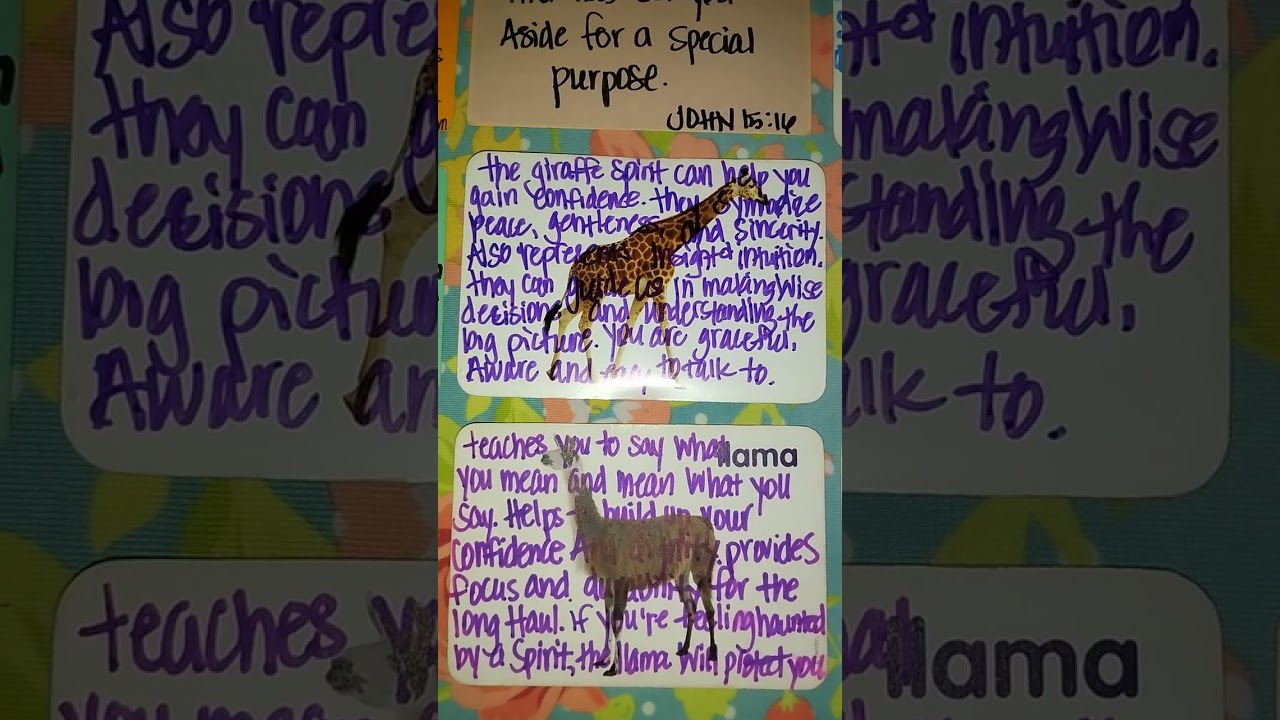 Aside for a special
purpose.
JOHN 15:16
the giraffe spirit can help you
gain confidence. they symbolize
peace, gentleness and sincerity.
Also represents insight & intuition.
they can guide us in making wise
decisions and understanding the
big picture. you are graceful,
Aware and easy to talk to.
llama
teaches you to say what
you mean and mean what you
say. Helps to build up your
confidence And provides
focus and for the
long Haul. if you're feeling haunted
by a Spirit, the llama will protect you